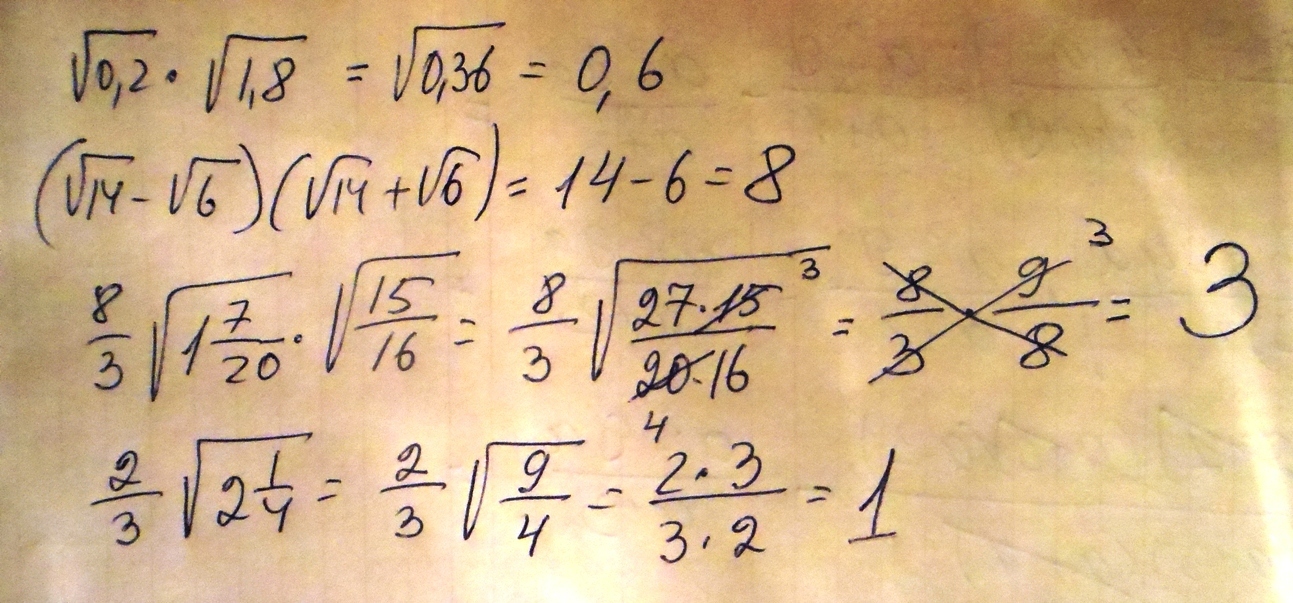 √0,2 · √1,8 = √0,36 = 0,6
(√14 - √6)(√14 + √6) = 14 - 6 = 8
8/3 √(1 7/20) · √(15/16) = 8/3 √((27·15 3)/(20·16 4)) = 8/3 9/8 3 = 3
2/3 √(2 1/4) = 2/3 √(9/4) = (2·3)/(3·2) = 1